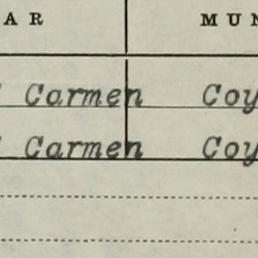 AR MUN
Carmen Coy
Carmen Coy